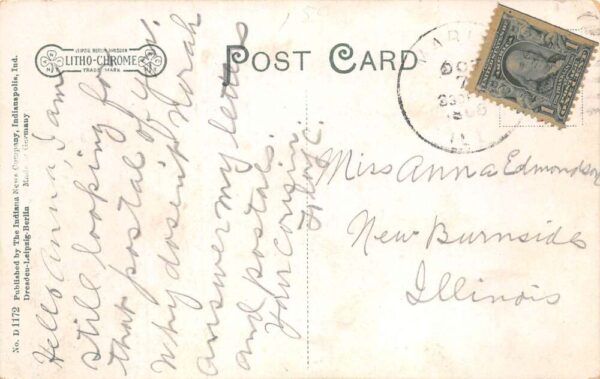 LEIPZIG BERLIN DRESDEN
LITHO-CHROME
TRADE MARK
POST CARD
No. D 1172 Published by The Indiana News Company, Indianapolis, Ind.
Dresden-Leipzig-Berlin Made in Germany
Hello Anna, I am
still looking for
that postal of your.
Why dosen't Norah
answer my letters
and postals.
Your cousin
Miss Anna Edmondson
New Burnside
Illinois
OCT
7